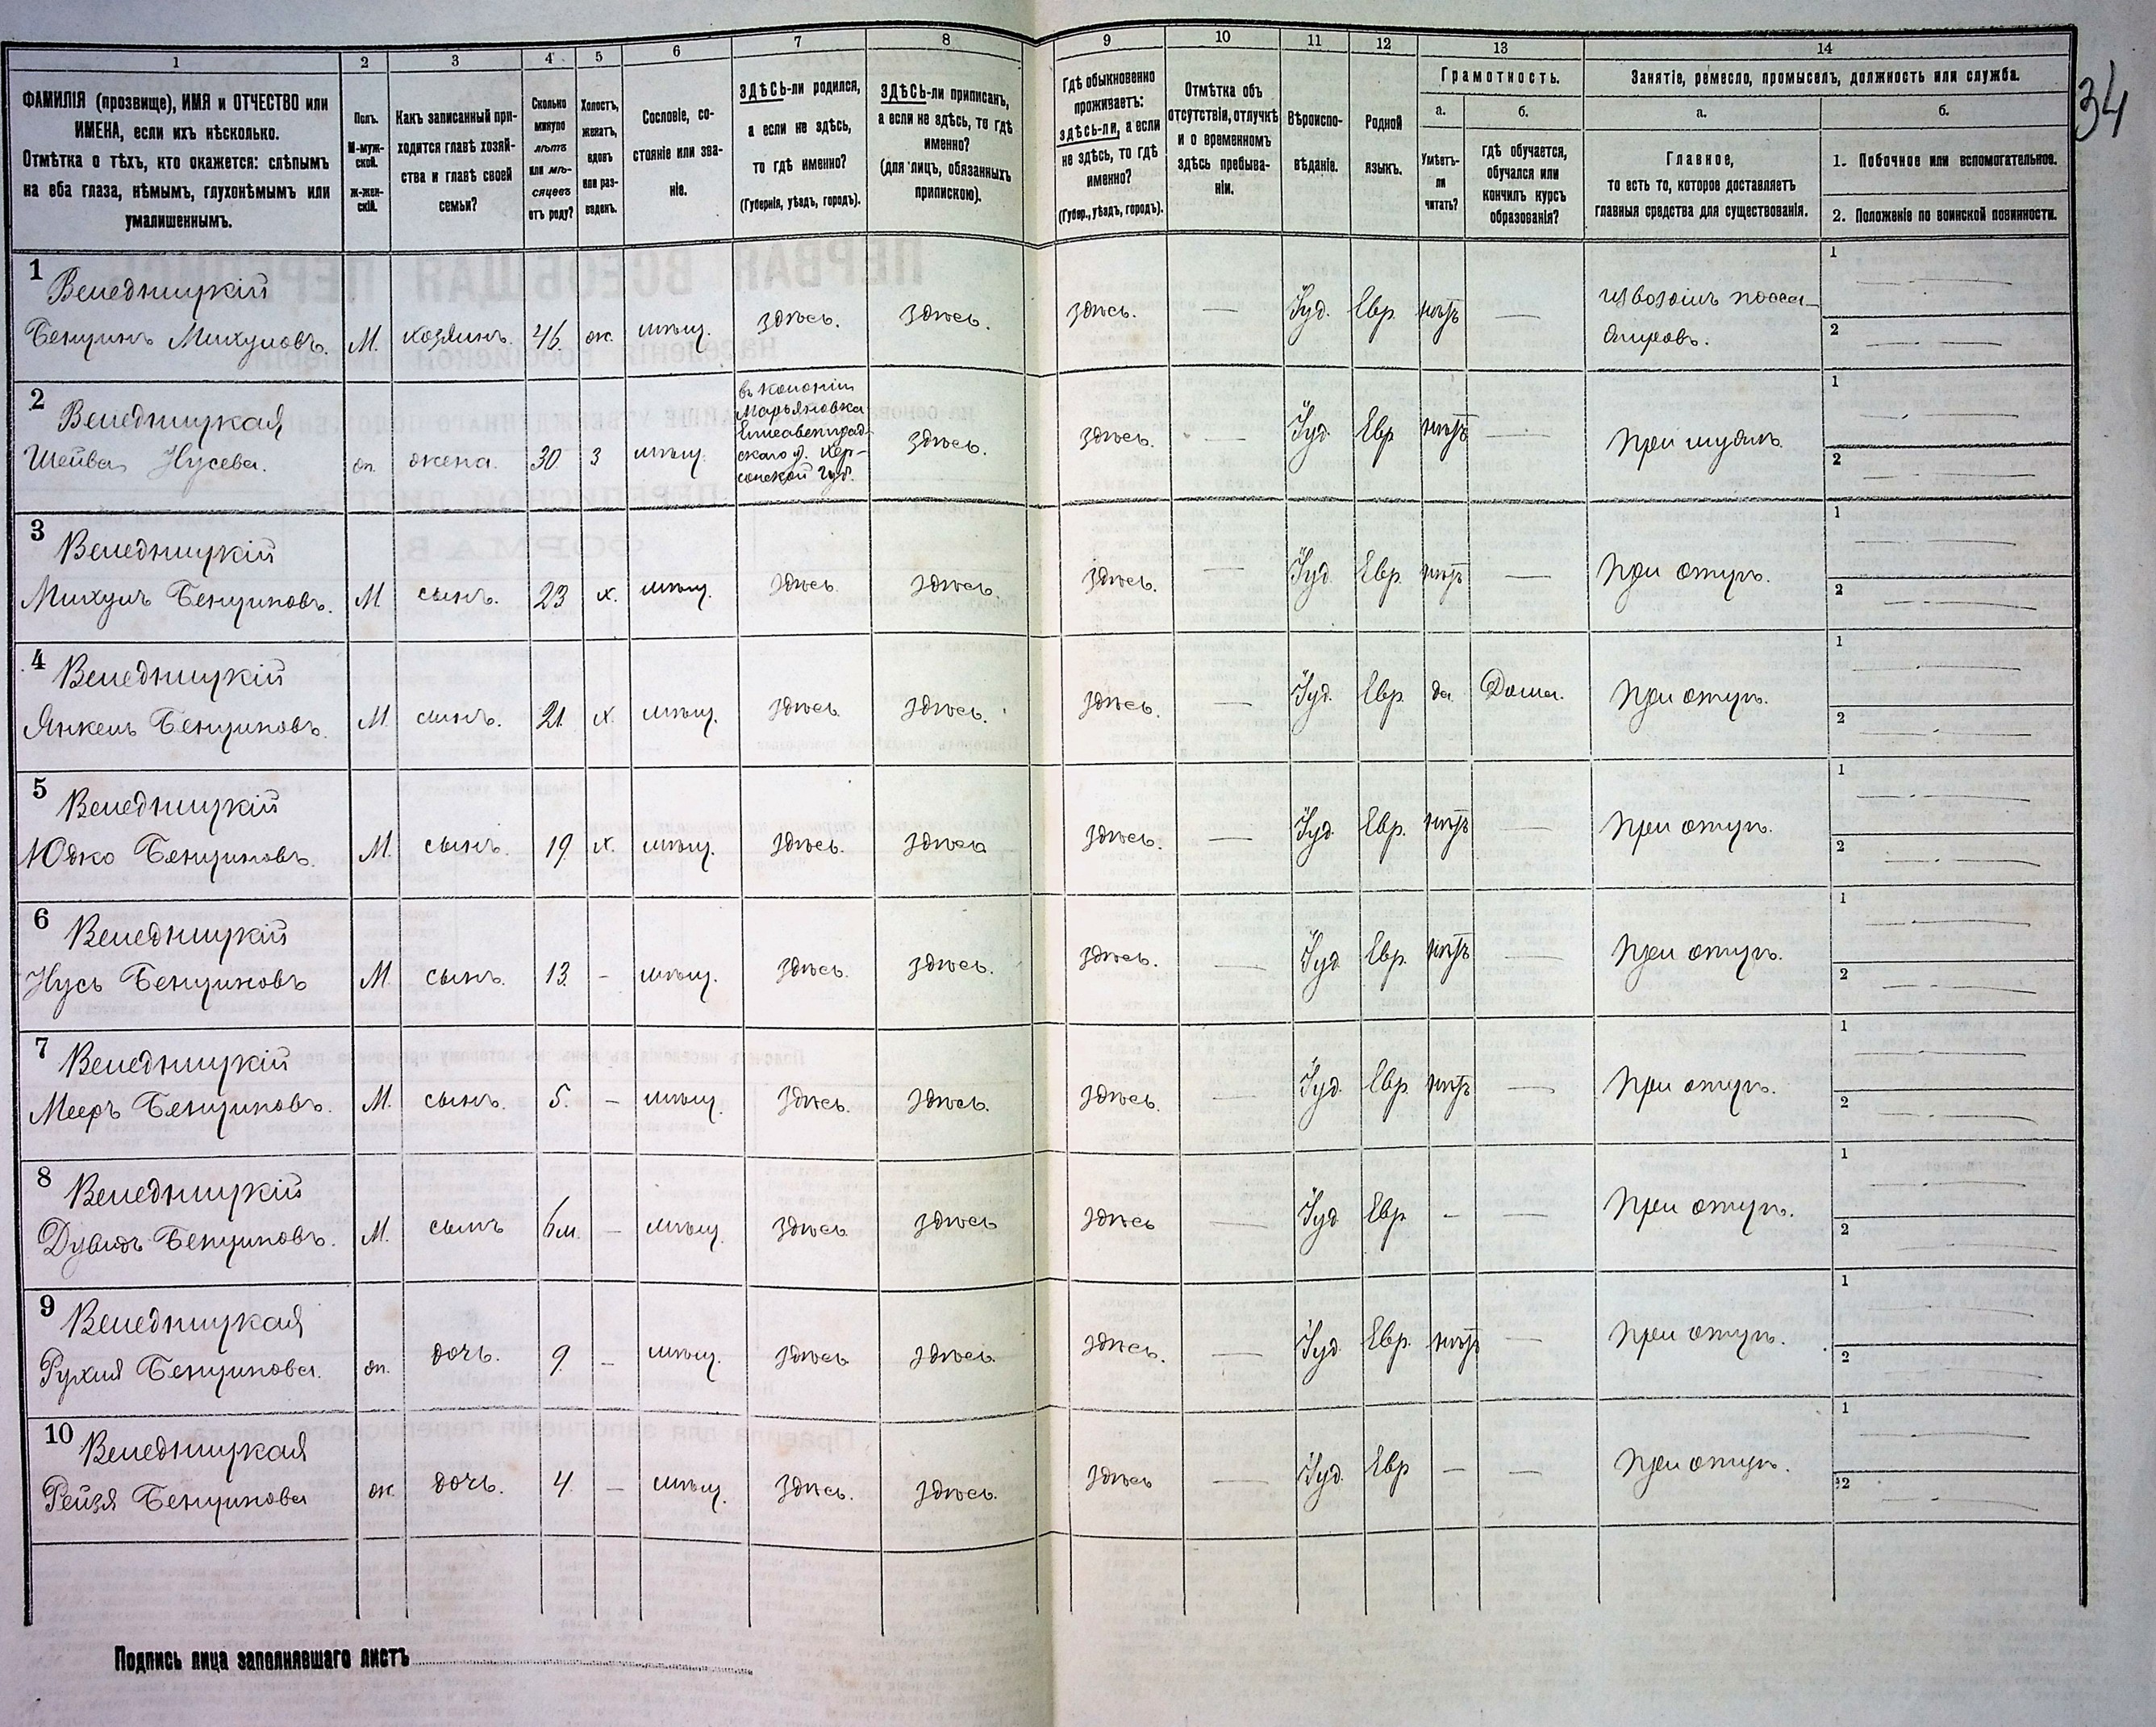 34
1 2 3 4 5 6 7 8 9 10 11 12 13 14
ФАМИЛІЯ (прозвище), ИМЯ и ОТЧЕСТВО или
ИМЕНА, если ихъ нѣсколько.
Отмѣтка о тѣхъ, кто окажется: слѣпымъ
на оба глаза, нѣмымъ, глухонѣмымъ или
умалишеннымъ.
Полъ.
М-муж-
ской.
Ж-жен-
скій.
Какъ записанный при-
ходится главѣ хозяй-
ства и главѣ своей
семьи?
Сколько
минуло
лѣтъ
или мѣ-
сяцевъ
отъ роду?
Холостъ,
женатъ,
вдовъ
или раз-
веденъ.
Сословіе, со-
стояніе или зва-
ніе.
ЗДѢСЬ-ли родился,
а если не здѣсь,
то гдѣ именно?
(Губернія, уѣздъ, городъ).
ЗДѢСЬ-ли приписанъ,
а если не здѣсь, то гдѣ
именно?
(для лицъ, обязанныхъ
припискою).
Гдѣ обыкновенно
проживаетъ:
здѣсь-ли, а если
не здѣсь, то гдѣ
именно?
(Губер., уѣздъ, городъ).
Отмѣтка объ
отсутствіи, отлучкѣ
и о временномъ
здѣсь пребыва-
ніи.
Вѣроиспо-
вѣданіе.
Родной
языкъ.
Грамотность.
а.
Умѣетъ-
ли
читать?
б.
гдѣ обучается,
обучался или
кончилъ курсъ
образованія?
Занятіе, ремесло, промыселъ, должность или служба.
а.
Главное,
то есть то, которое доставляетъ
главныя средства для существованія.
б.
1. Побочное или вспомогательное.
2. Положеніе по воинской повинности.
1 Веледницкій
Бенціинъ Михулевъ. М. хозяинъ. 46. ж. мѣщ. здѣсь. здѣсь. здѣсь. — Іуд. Евр. нѣтъ — извозчикъ пасса-
жировъ. 1 — 2 —
2 Веледницкая
Шейва Нусева. ж. жена. 30 З мѣщ.
въ колоніи
Марьяновка
Елисаветград-
скаго у. Хер-
сонской губ.
здѣсь. здѣсь. — Іуд. Евр нѣтъ — При мужѣ. 1 — 2 —
3 Веледницкій
Михулъ Бенціиновъ. М. сынъ. 23 х. мѣщ. здѣсь. здѣсь. здѣсь. — Іуд. Евр. нѣтъ — При отцѣ. 1 — 2 —
4 Веледницкій
Янкель Бенціиновъ. М. сынъ. 21. х. мѣщ. здѣсь. здѣсь. здѣсь. — Іуд. Евр. да Дома. При отцѣ. 1 — 2 —
5 Веледницкій
Юдко Бенціиновъ. М. сынъ. 19. х. мѣщ. здѣсь. здѣсь здѣсь. — Іуд. Евр. нѣтъ — При отцѣ. 1 — 2 —
6 Веледницкій
Нусь Бенціиновъ М. сынъ. 13. - мѣщ. здѣсь. здѣсь. здѣсь. — Іуд. Евр. нѣтъ — При отцѣ. 1 — 2 —
7 Веледницкій
Мееръ Бенціиновъ. М. сынъ. 5. - мѣщ. здѣсь. здѣсь. здѣсь. — Іуд. Евр. нѣтъ — При отцѣ. 1 — 2 —
8 Веледницкій
Дувидъ Бенціиновъ. М. сынъ 6 м. - мѣщ. здѣсь здѣсь здѣсь — Іуд Евр - — При отцѣ. 1 — 2 —
9 Веледницкая
Рухля Бенціинова. ж. дочь. 9. - мѣщ. здѣсь здѣсь. здѣсь. — Іуд. Евр. нѣтъ — При отцѣ. 1 — 2 —
10 Веледницкая
Рейзя Бенціинова ж. дочь. 4. - мѣщ. здѣсь. здѣсь. здѣсь — Іуд. Евр - — При отцѣ. 1 — 2 —
Подпись лица заполнявшаго листъ